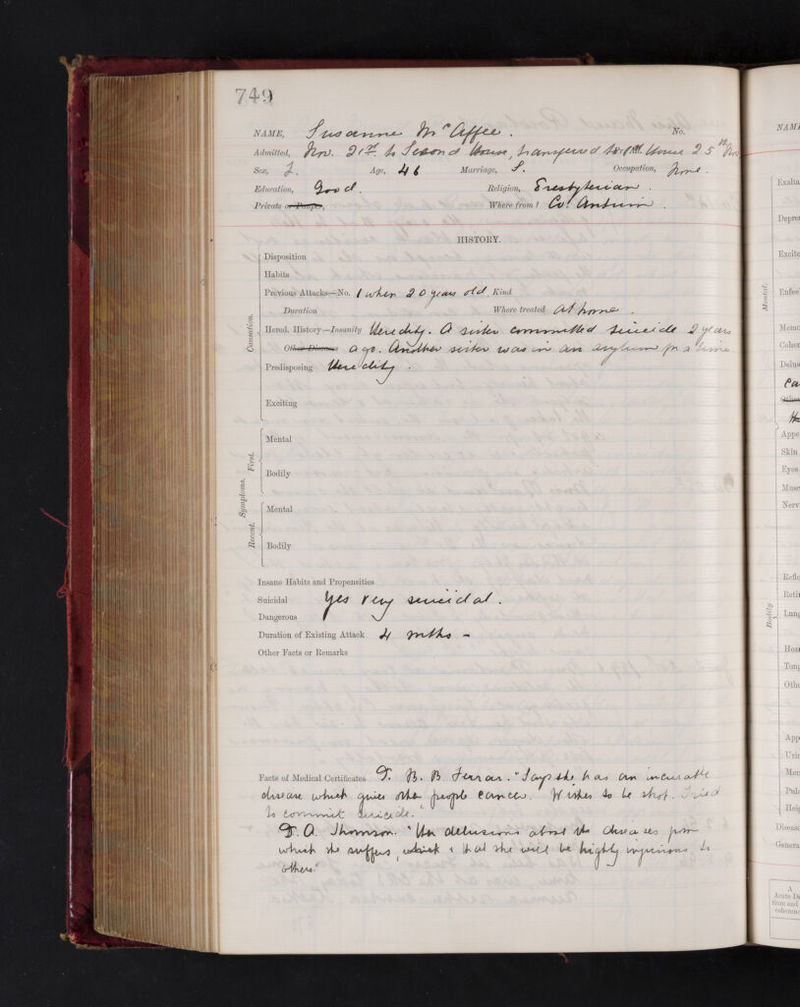 749
NAME, Susanna McCaffee. No.
Admitted, Nov. 21st to Second House, transferred to 1st House 25th Nov
Sex, F. Age, 46 Marriage, S. Occupation, None.
Education, Good. Religion, Presbyterian.
Private or Pauper, Where from? Co. Antrim.
HISTORY.
Causation.
Disposition
Habits
Previous Attacks—No. 1 when 20 years old. Kind
Duration Where treated At home.
Hered. History—Insanity Heredity. A sister committed suicide 2 years
Other Diseases ago. Another sister was in an asylum for a time
Predisposing Heredity.
Exciting
Symptoms.
First.
Mental
Bodily
Recent.
Mental
Bodily
Insane Habits and Propensities
Suicidal Yes very suicidal.
Dangerous
Duration of Existing Attack 4 mths –
Other Facts or Remarks
Facts of Medical Certificates B. B. "Says she has an incurable
disease which gives other people cancer. Wishes to be shot. Tried
to commit suicide."
A. Thomson. "Her delusions about the diseases from
which she suffers & that she will be highly injurious to
others."
NAME
Mental.
Bodily
Skin
Eyes
A